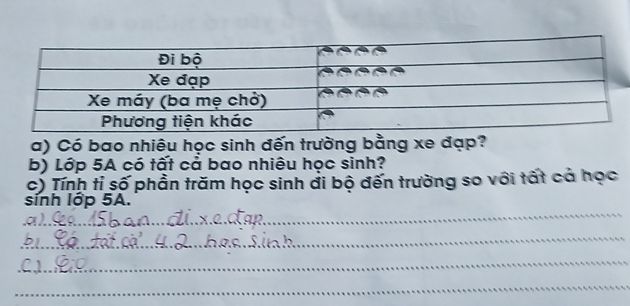 Đi bộ
Xe đạp
Xe máy (ba mẹ chở)
Phương tiện khác
a) Có bao nhiêu học sinh đến trường bằng xe đạp?
b) Lớp 5A có tất cả bao nhiêu học sinh?
c) Tính tỉ số phần trăm học sinh đi bộ đến trường so với tất cả học
sinh lớp 5A.
a) Có 15 bạn đi xe đạp
b) Có tất cả 42 học sinh
c) Có